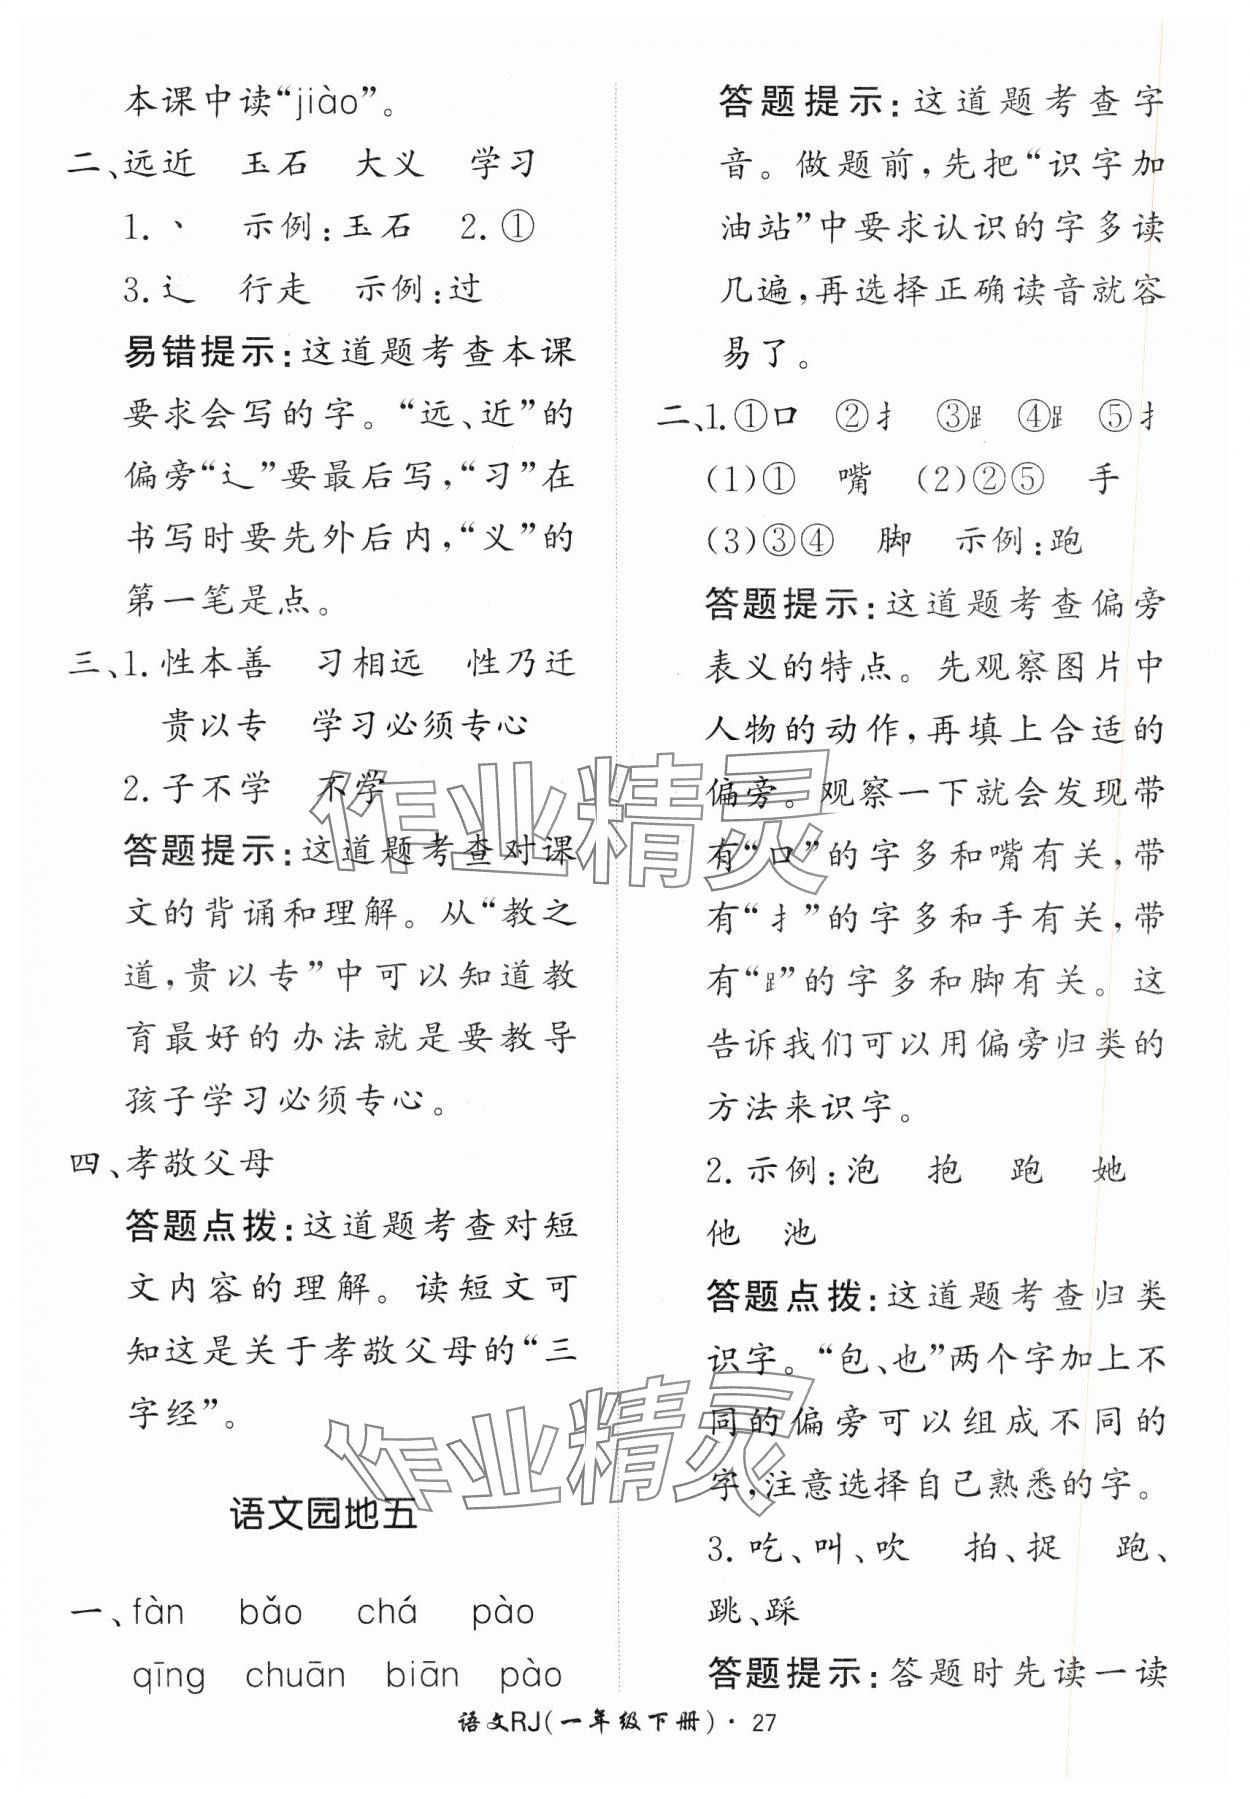 本课中读“jiào”。
二、远近 玉石 大义 学习
1. 丶 示例:玉石 2. ①
3. 辶 行走 示例:过
易错提示:这道题考查本课
要求会写的字。“远、近”的
偏旁“辶”要最后写,“习”在
书写时要先外后内,“义”的
第一笔是点。
三、1. 性本善 习相远 性乃迁
贵以专 学习必须专心
2. 子不学 不学
答题提示:这道题考查对课
文的背诵和理解。从“教之
道,贵以专”中可以知道教
育最好的办法就是要教导
孩子学习必须专心。
四、孝敬父母
答题点拨:这道题考查对短
文内容的理解。读短文可
知这是关于孝敬父母的“三
字经”。
语文园地五
一、fàn bǎo chá pào
qīng chuān biān pào
答题提示:这道题考查字
音。做题前,先把“识字加
油站”中要求认识的字多读
几遍,再选择正确读音就容
易了。
二、1. ①口 ②扌 ③⻊ ④⻊ ⑤扌
(1)① 嘴 (2)②⑤ 手
(3)③④ 脚 示例:跑
答题提示:这道题考查偏旁
表义的特点。先观察图片中
人物的动作,再填上合适的
偏旁。观察一下就会发现带
有“口”的字多和嘴有关,带
有“扌”的字多和手有关,带
有“⻊”的字多和脚有关。这
告诉我们可以用偏旁归类的
方法来识字。
2. 示例:泡 抱 跑 她
他 池
答题点拨:这道题考查归类
识字。“包、也”两个字加上不
同的偏旁可以组成不同的
字,注意选择自己熟悉的字。
3. 吃、叫、吹 拍、捉 跑、
跳、踩
答题提示:答题时先读一读
语文RJ(一年级下册)·27
作业精灵
作业精灵